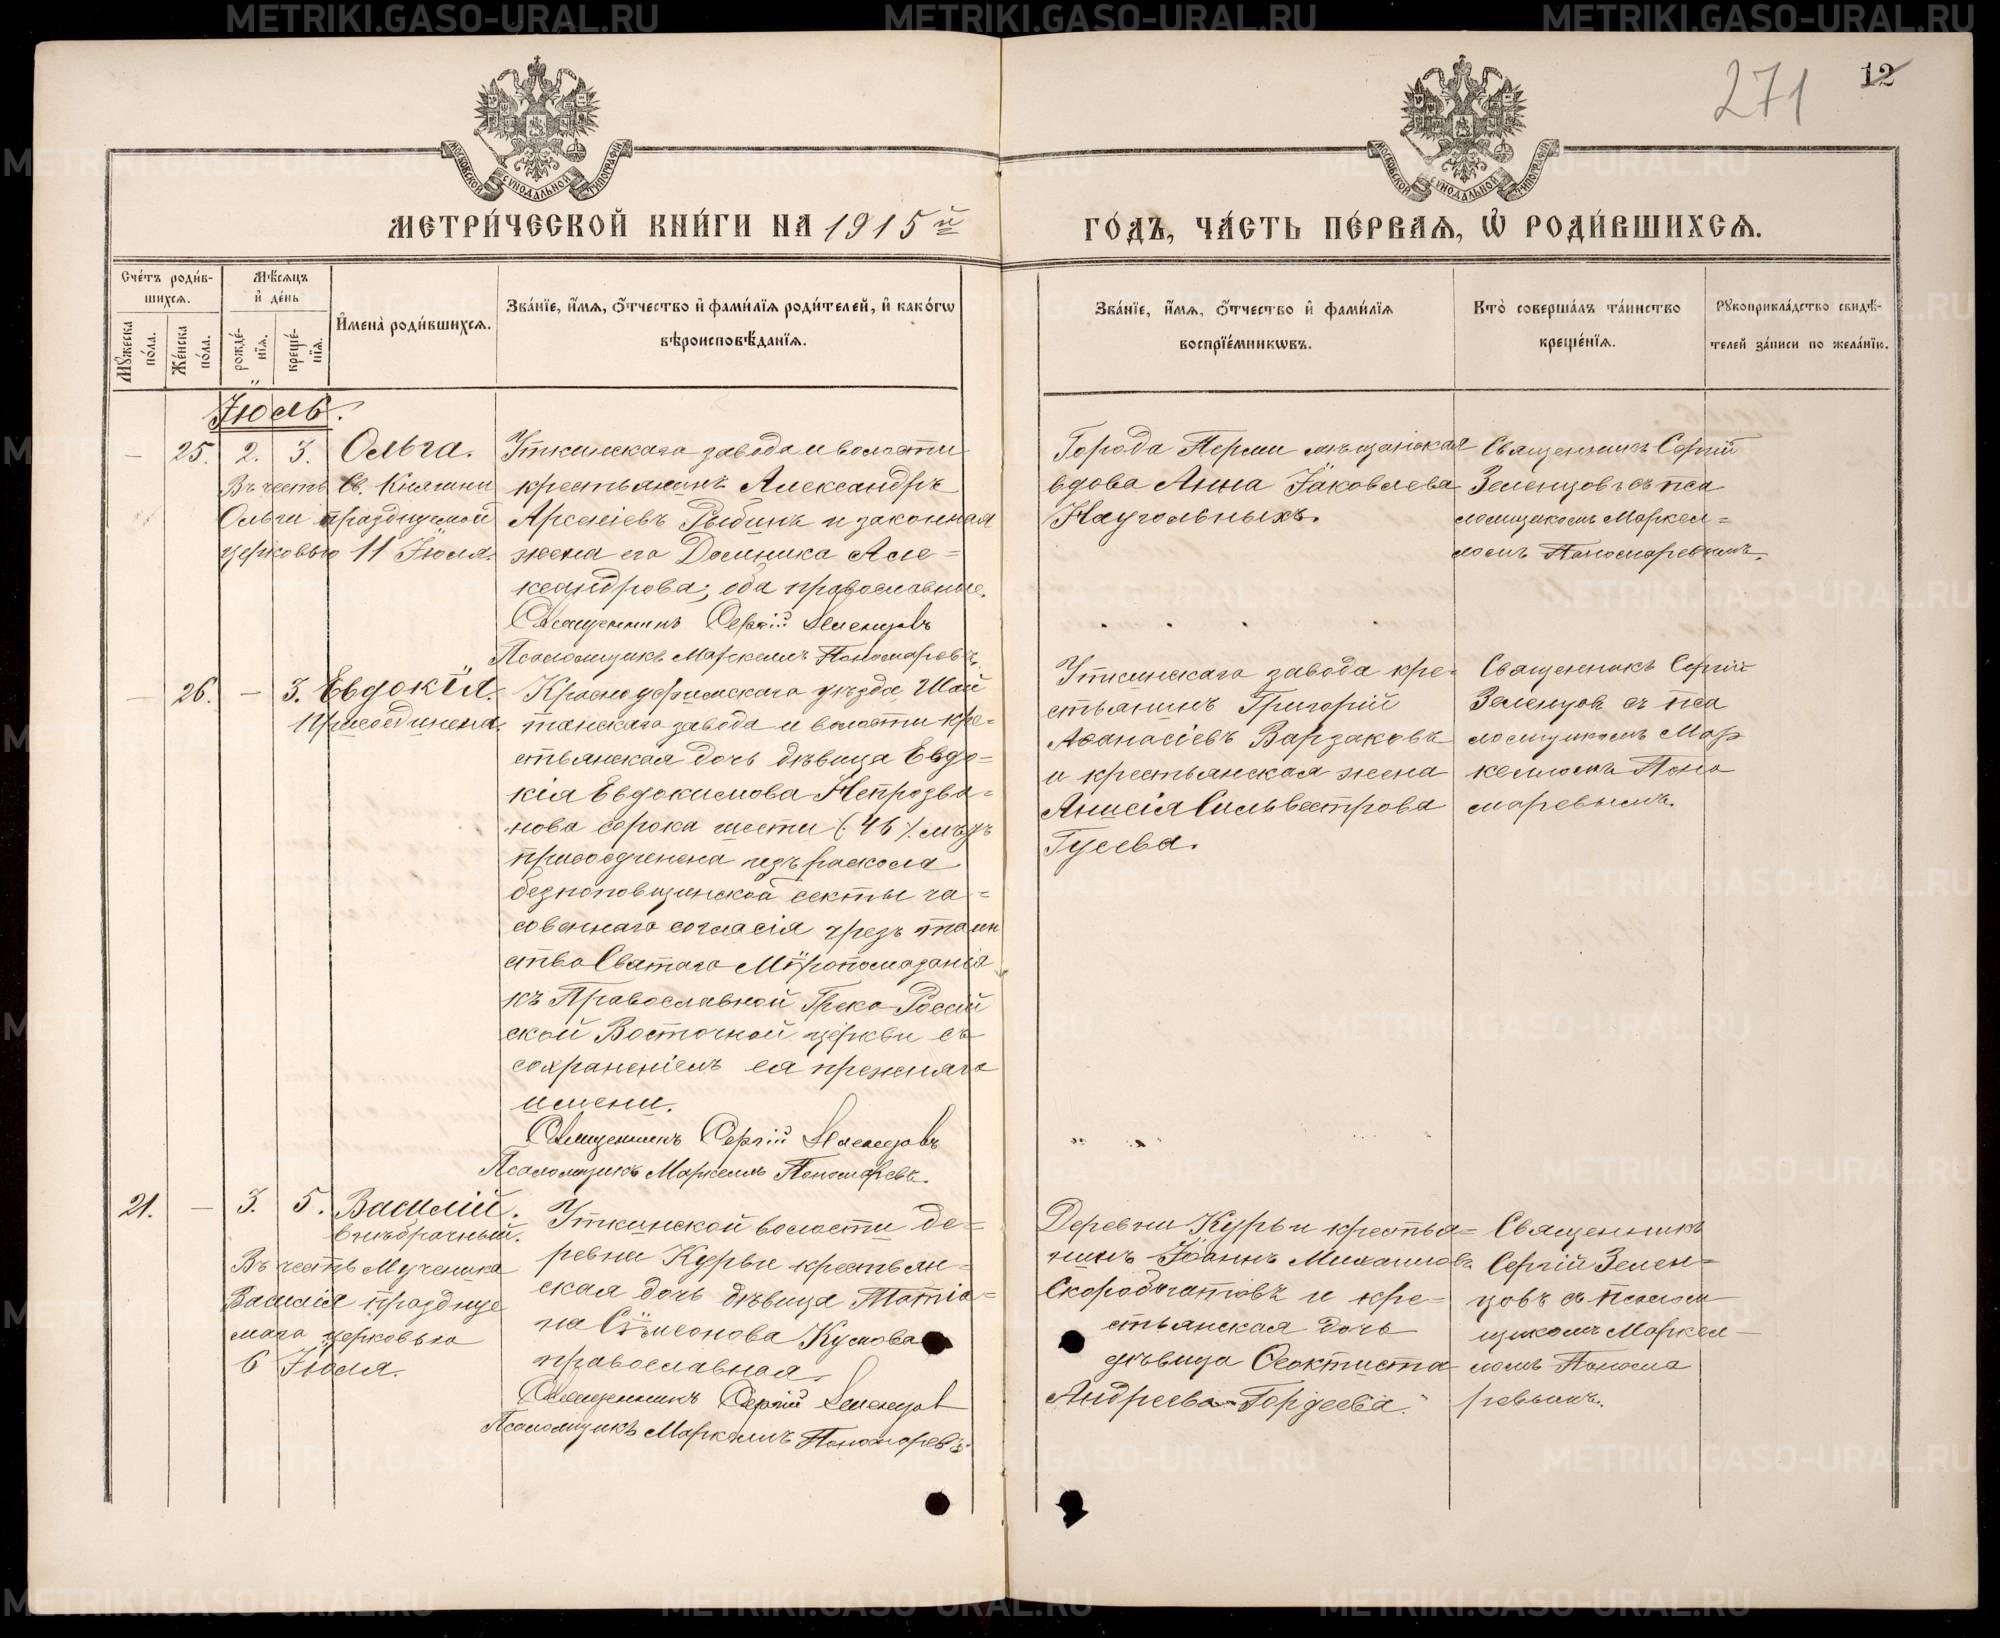 271
12
МОСКОВСКОЙ СѴНОДАЛЬНОЙ ТИПОГРАФІИ
МОСКОВСКОЙ СѴНОДАЛЬНОЙ ТИПОГРАФІИ
МЕТРИ́ЧЕСКОЙ КНИ́ГИ НА 1915й
ГО́ДЪ, ЧА́СТЬ ПЕ́РВАѦ, Ѽ РОДИ́ВШИХСѦ.
Сче́тъ роди́в-
шихсѧ.
Мꙋ́жеска по́ла.
Же́нска по́ла.
Мѣ́сѧцъ
и҆ де́нь
рожде́-
нїѧ.
креще́-
нїѧ.
И҆мена̀ роди́вшихсѧ.
Зва́нїе, и҆́мѧ, ѻ҆́тчество и҆ фами́лїѧ роди́телей, и҆ како́гѡ
вѣроисповѣ́данїѧ.
Зва́нїе, и҆́мѧ, ѻ҆́тчество и҆ фами́лїѧ
воспрїе́мникѡвъ.
Кто̀ соверша́лъ та́инство
креще́нїѧ.
Рꙋкоприкла́дство свидѣ́-
телей за́писи по жела́нїю.
Іюль.
— 25. 2. 3. Ольга.
Въ честь Св. Княгини
Ольги празднуемой
церковью 11 Іюля.
Уткинскаго завода и волости
крестьянинъ Александръ
Арсеніевъ Рыбинъ и законная
жена его Домника Але=
ксандрова; оба православные.
Священникъ Сергій Зеленцовъ
Псаломщикъ Маркеллъ Пономаревъ.
Города Перми мѣщанская
вдова Анна Іаковлева
Наугольныхъ.
Священникъ Сергій
Зеленцовъ съ пса
ломщикомъ Маркел=
ломъ Пономаревымъ.
— 26. — 3. Евдокія.
Присоединена.
Красноуфимскаго уѣзда, Шай
танскаго завода и волости кре=
стьянская дочь дѣвица Евдо=
кія Евдокимова Непрозва=
нова сорока шести (46) лѣтъ
присоединена изъ раскола
безпоповщинской секты ча=
совеннаго согласія чрезъ таин
ство Святаго Мѵропомазанія
къ Православной Греко-Россій
ской Восточной церкви съ
сохраненіемъ ея прежняго
имени.
Священникъ Сергій Зеленцовъ
Псаломщикъ Маркеллъ Пономаревъ.
Уткинскаго завода кре=
стьянинъ Григорій
Аѳанасіевъ Варзаковъ
и крестьянская жена
Анисія Сильвестрова
Гусева.
Священникъ Сергій
Зеленцовъ съ пса
ломщикомъ Мар
келломъ Поно
маревымъ.
21. — 3. 5. Василій.
внѣбрачный.
Въ честь Мученика
Василія празднуе
маго церковью
6 Іюля.
Уткинской волости де=
ревни Курьи крестьян=
ская дочь дѣвица Татіа=
на Сѵмеонова Кусова
православная.
Священникъ Сергій Зеленцовъ
Псаломщикъ Маркеллъ Пономаревъ
Деревни Курьи крестья=
нинъ Іоаннъ Михаиловъ
Скоробогатовъ и кре=
стьянская дочь
дѣвица Ѳеоктиста
Андреева Гордеева.
Священникъ
Сергій Зелен=
цовъ съ псалом
щикомъ Маркел—
ломъ Понома
ревымъ.